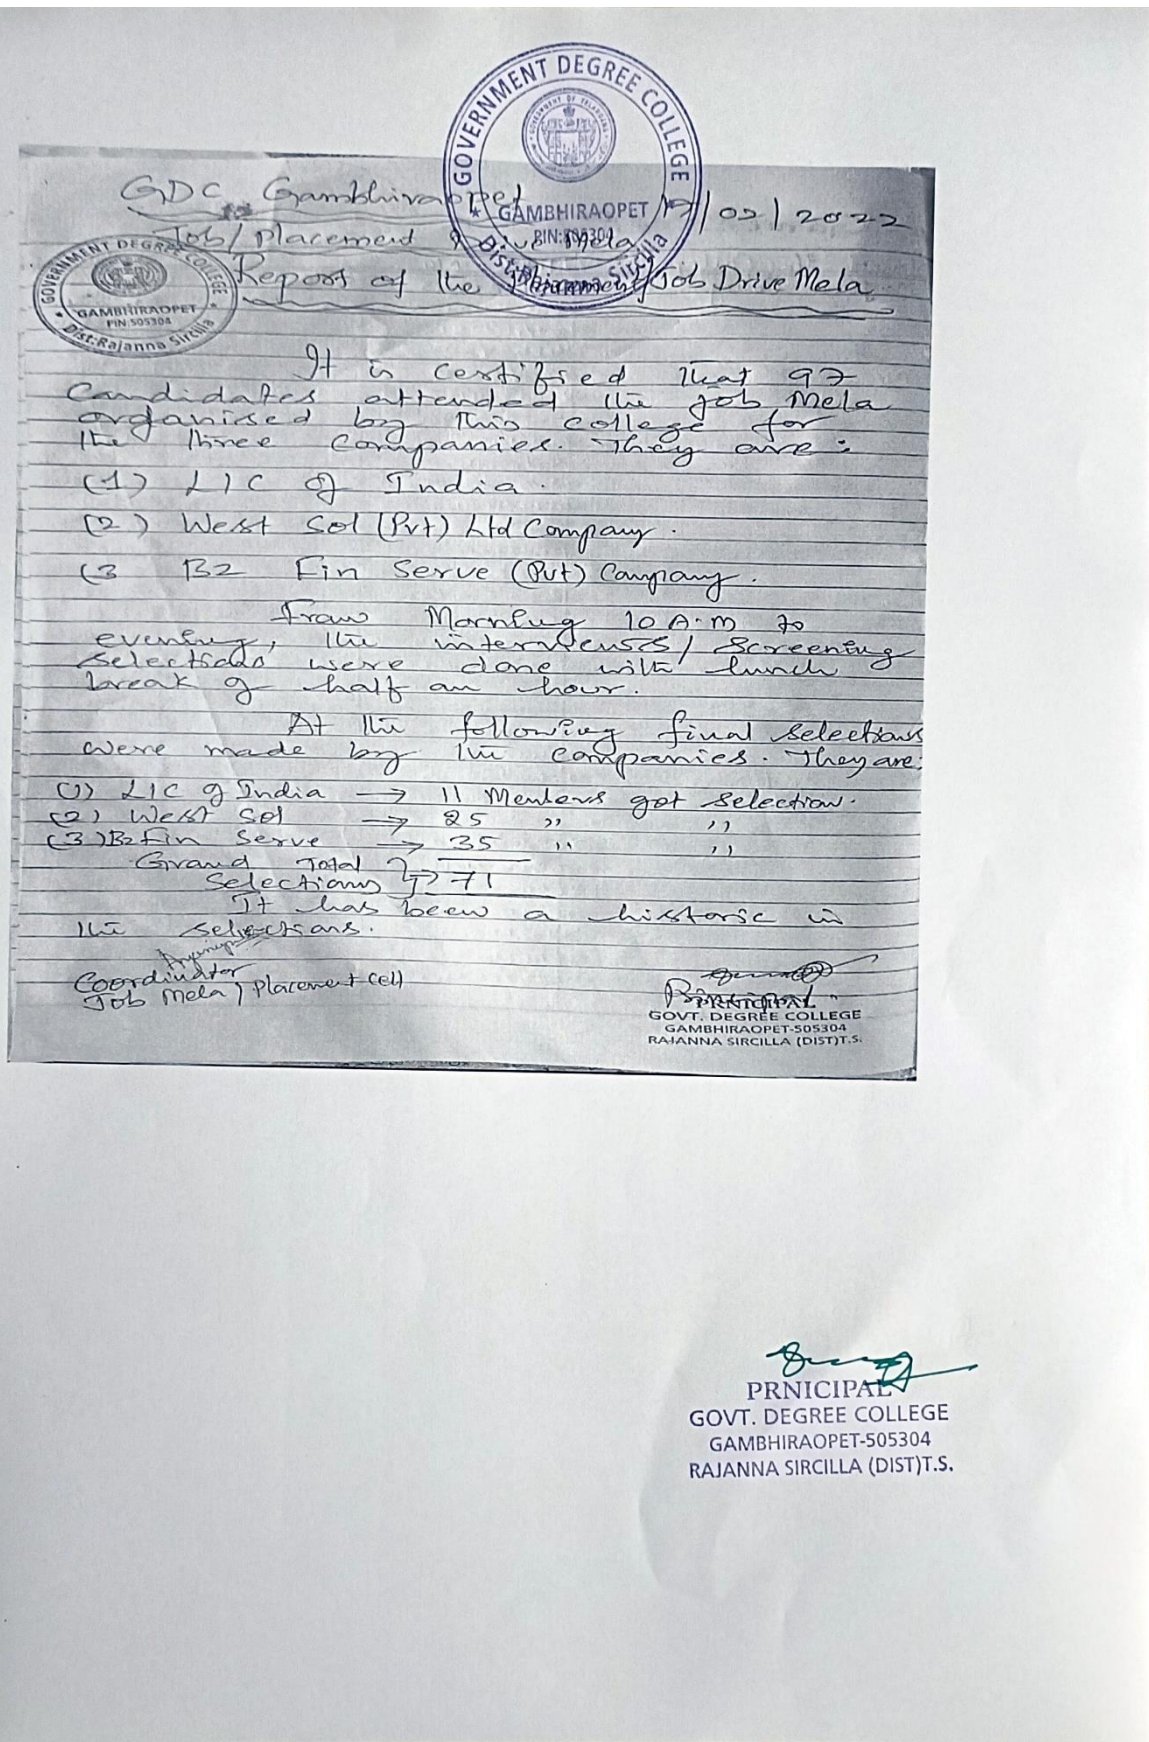 GOVERNMENT DEGREE COLLEGE
GOVERNMENT OF TELANGANA
GAMBHIRAOPET
PIN:505304
Dist:Rajanna Sircilla
GDC, Gambhiraopet /02/2022
Job/Placement Drive Mela
GOVERNMENT DEGREE COLLEGE
GAMBHIRAOPET
PIN:505304
Dist:Rajanna Sircilla
Report of the Placement/Job Drive Mela
It is certified that 97
Candidates attended the Job Mela
organised by this college for
the three companies. They are:
(1) LIC of India.
(2) West Sol (Pvt) Ltd Company.
(3 B2 Fin Serve (Pvt) Company.
From Morning 10 A.M to
evening, the interviews/Screening
selections were done with lunch
break of half an hour.
At the following final selections
were made by the companies. They are:
(1) LIC of India → 11 Members got selection.
(2) West Sol → 25 ,, ,,
(3) B2 Fin Serve → 35 ,, ,,
Grand Total
Selections → 71
It has been a historic in
the selections.
Coordinator
Job Mela, Placement cell
Principal
GOVT. DEGREE COLLEGE
GAMBHIRAOPET-505304
RAJANNA SIRCILLA (DIST)T.S.
PRNICIPAL
GOVT. DEGREE COLLEGE
GAMBHIRAOPET-505304
RAJANNA SIRCILLA (DIST)T.S.